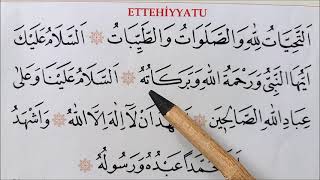 ETTEHİYYATU
اَلتَّحِيَّاتُ لِلّٰهِ وَالصَّلَوَاتُ وَالطَّيِّبَاتُ ۞ اَلسَّلَامُ عَلَيْكَ
اَيُّهَا النَّبِيُّ وَرَحْمَةُ اللّٰهِ وَبَرَكَاتُهُ ۞ اَلسَّلَامُ عَلَيْنَا وَعَلٰى
عِبَادِ اللّٰهِ الصَّالِحِينَ ۞ اَنْ لَا اِلٰهَ اِلَّا اللّٰهُ ۞ وَاَشْهَدُ
عَبْدُهُ وَرَسُولُهُ ۞